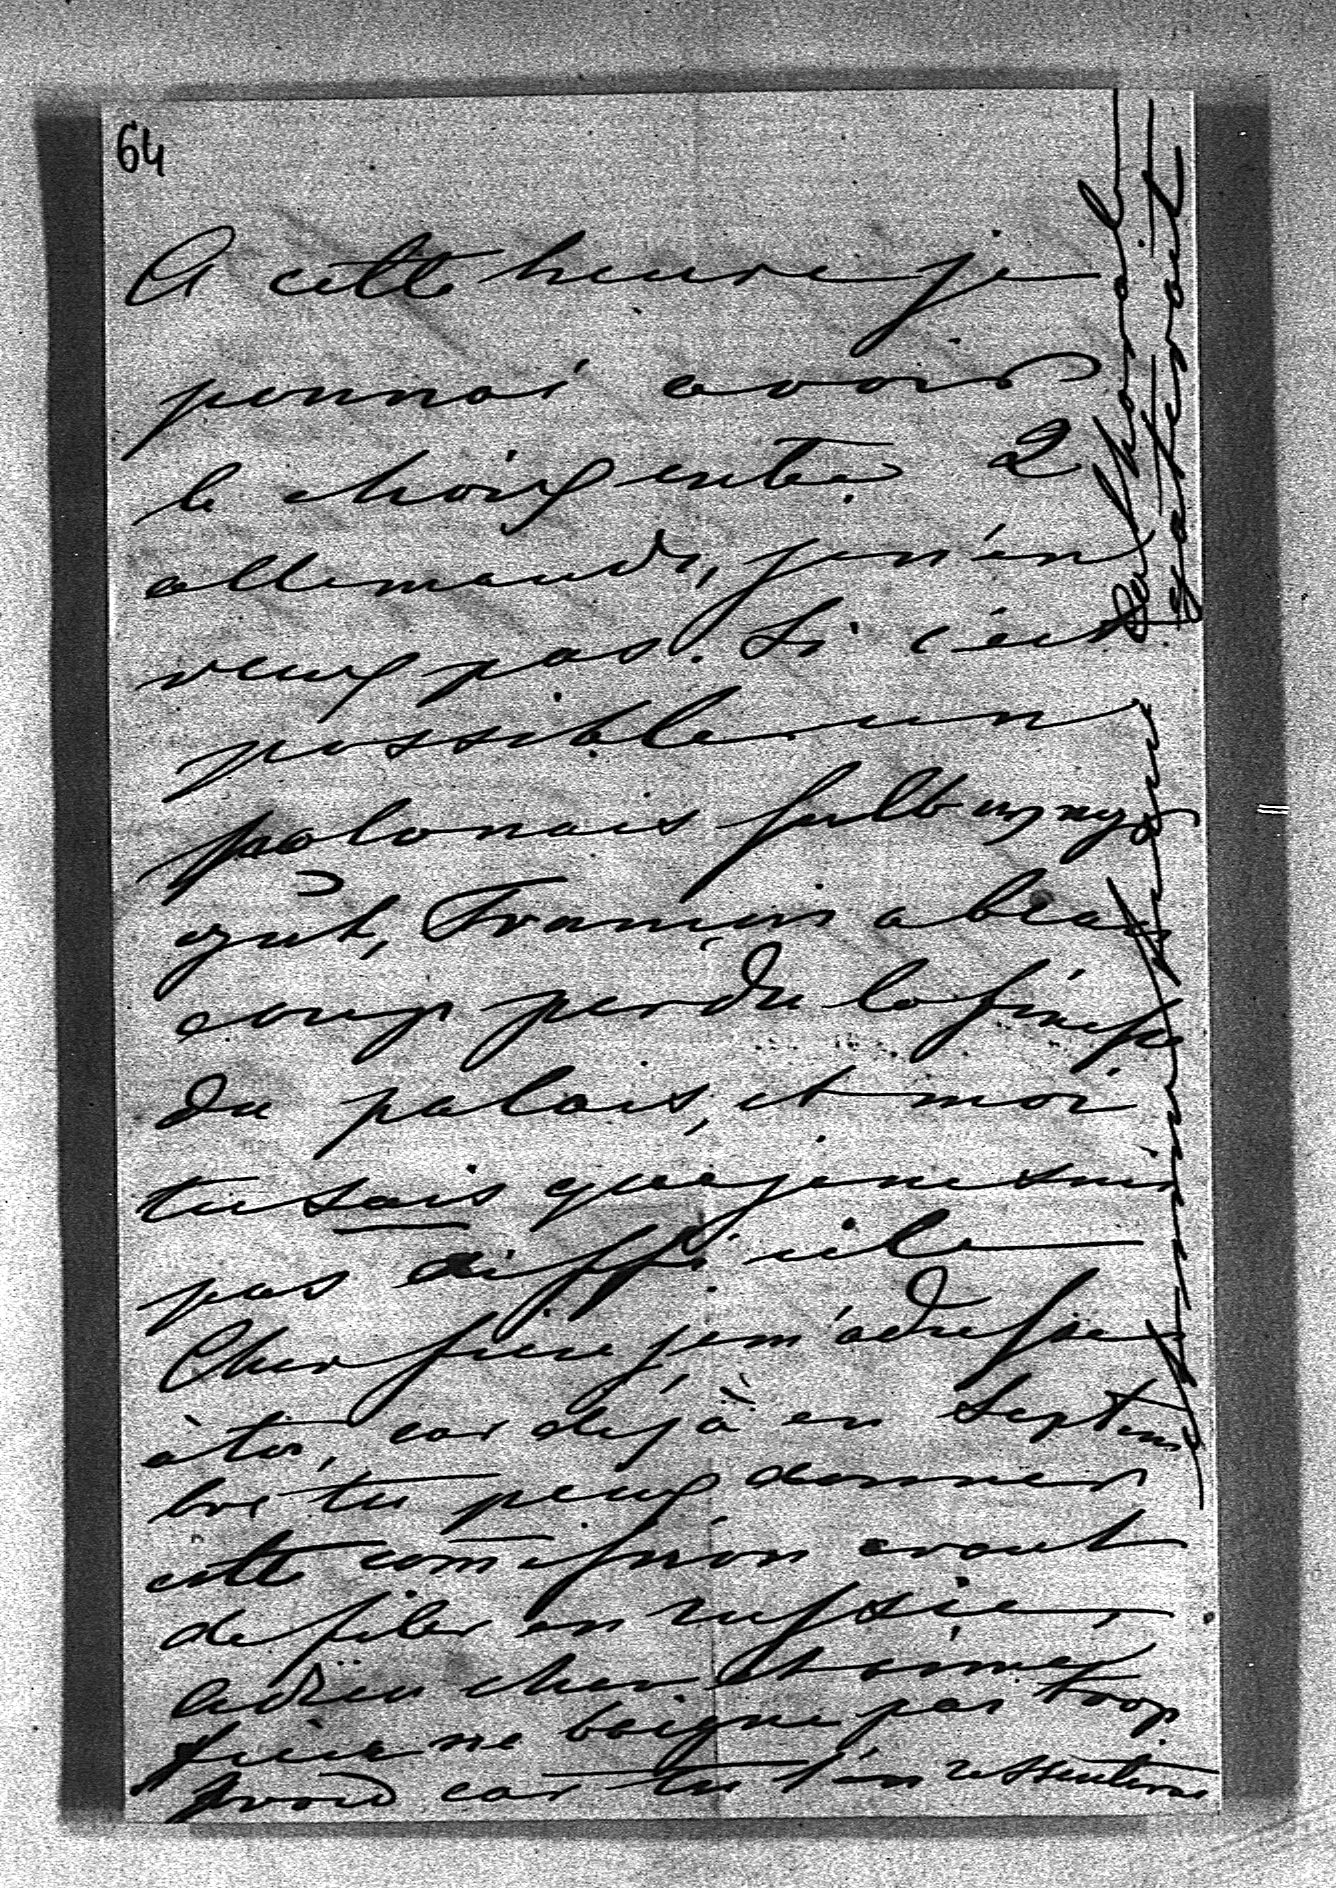 64
A cette heure je
pourrai avoir
le choix entre 2
allemands, je n'en
veux pas. Si c'est
possible un
polonais
goût, Francis a beau
coup perdu la finesse
du palais, et moi
tu sais que je ne suis
pas difficile
Cher frère je m'adresse
à toi, car déjà en Septem
bre tu peux donner
cette comission avant
de filer en russie,
adieu cher et aimé
frère ne baigne pas trop
froid car tu t'en ressentiras